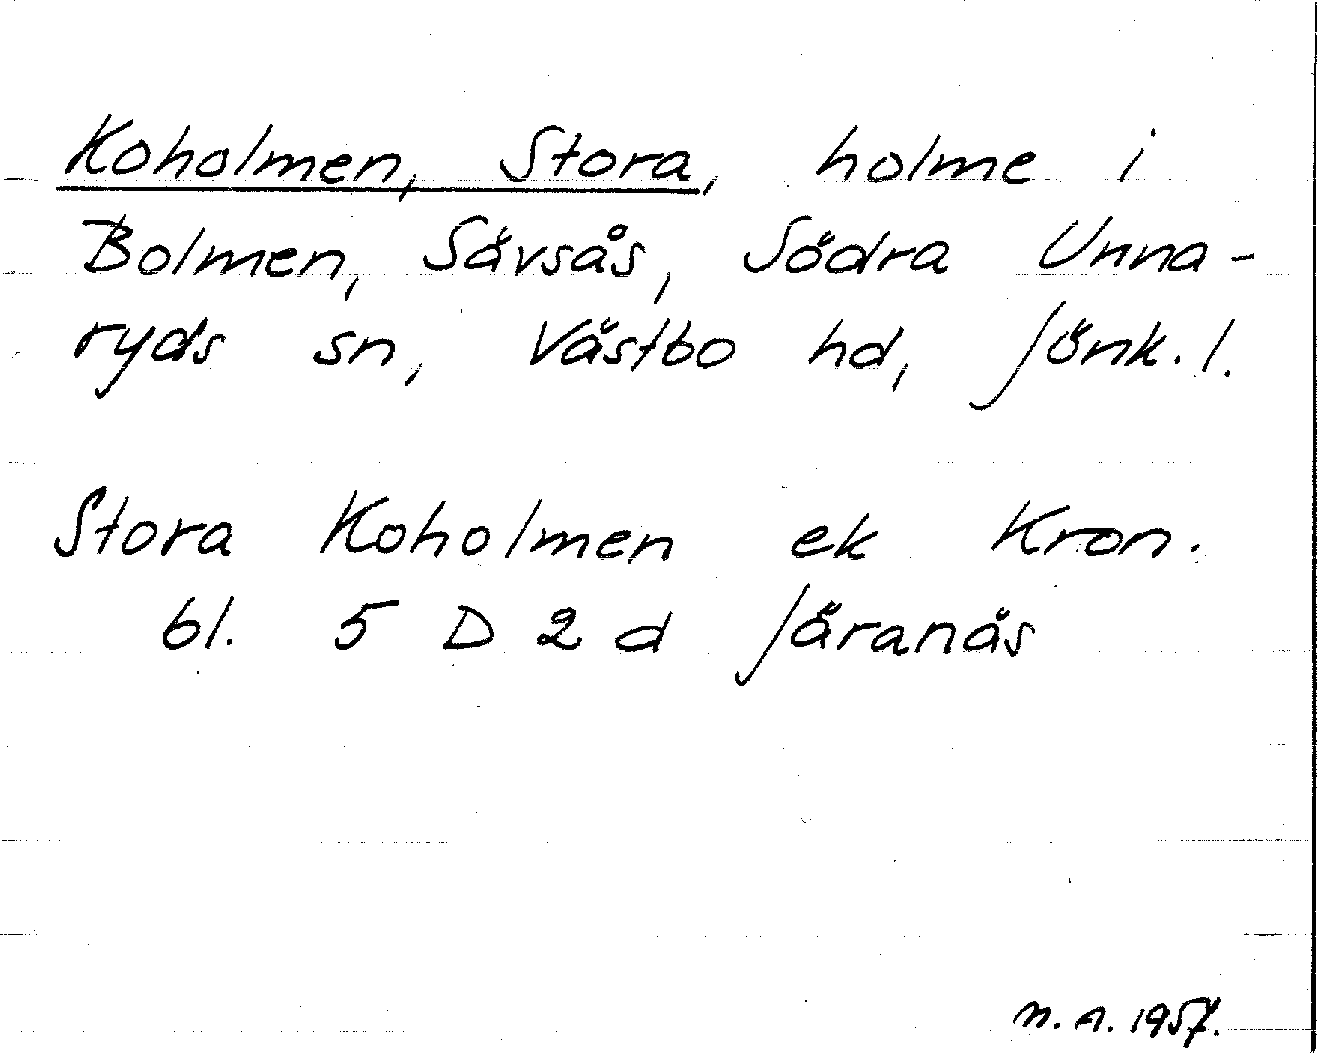 Koholmen, Stora, holme i
Bolmen, Sävsås, Södra Unna-
ryds sn, Västbo hd, Jönk. l.
Stora Koholmen ek Kron.
bl. 5 D 2 d Järanäs
N. A. 1957.